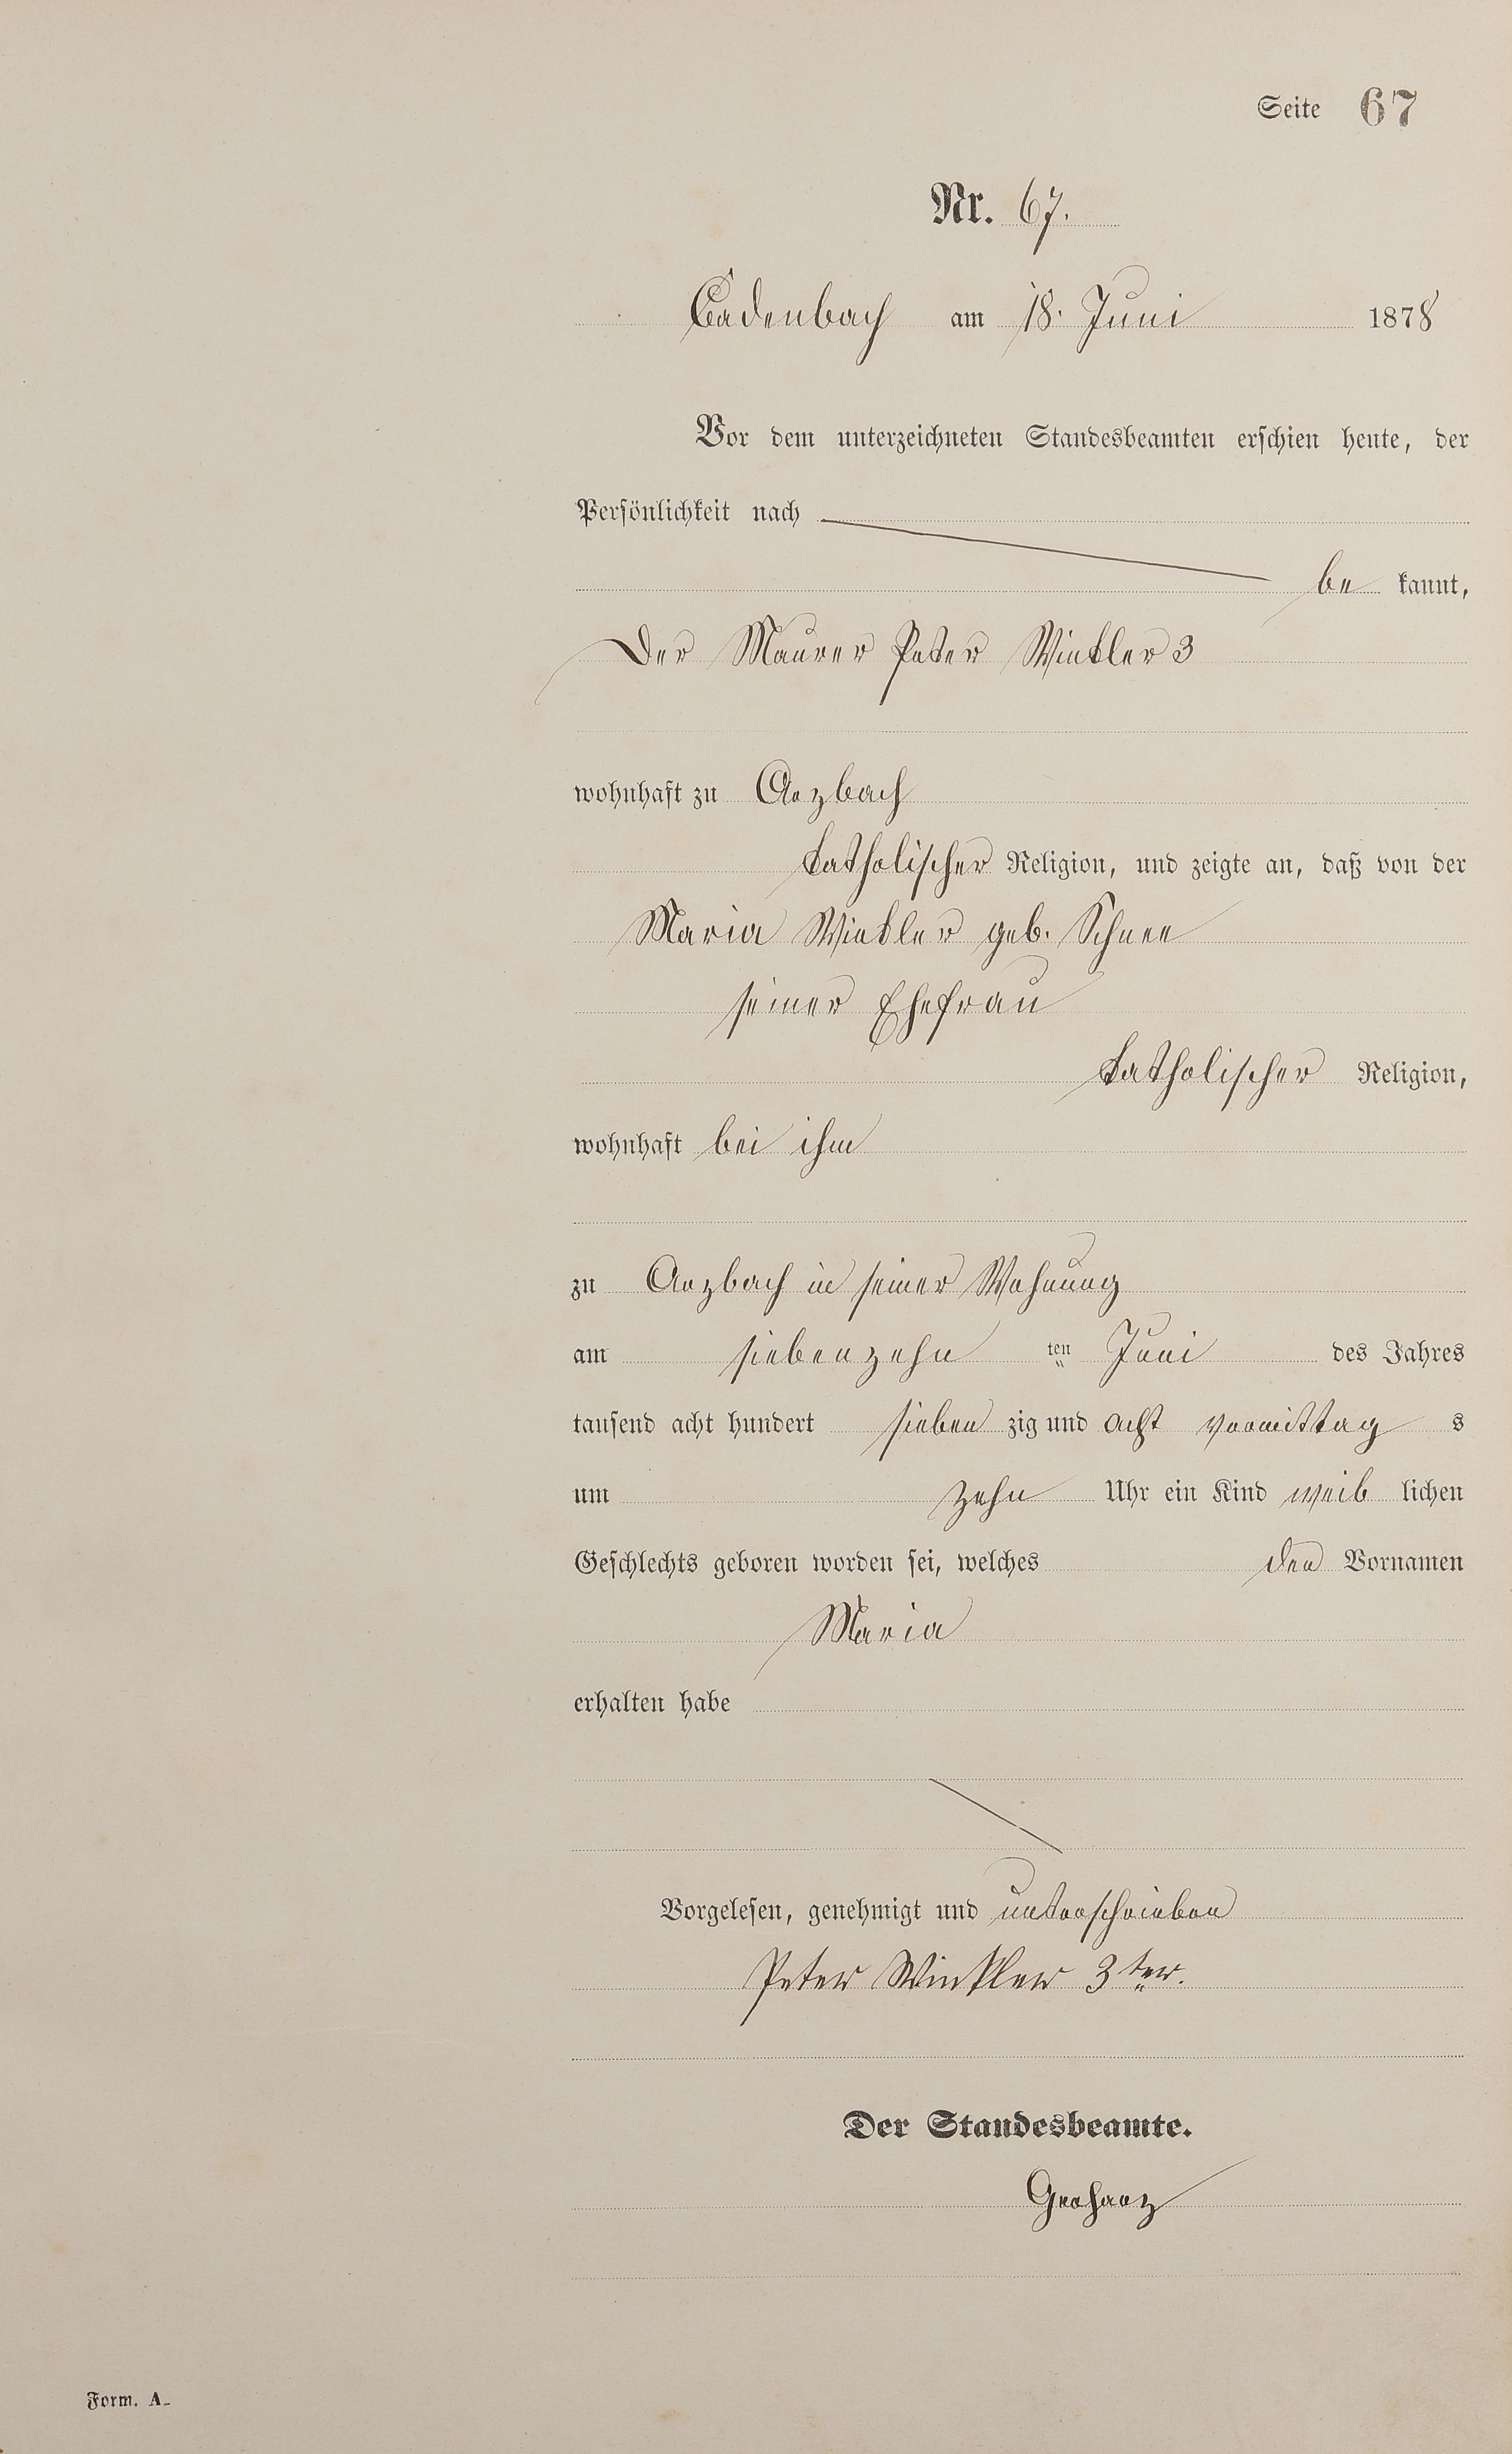 Seite 67
Nr. 67.
Cadenbach am 18. Juni 1878
Vor dem unterzeichneten Standesbeamten erschien heute, der
Persönlichkeit nach
be kannt,
Der Maurer Peter Winkler 3
wohnhaft zu Arzbach
katholischer Religion, und zeigte an, daß von der
Maria Winkler geb. Schnee
seiner Ehefrau
katholischer Religion,
wohnhaft bei ihm
zu Arzbach in seiner Wohnung
am siebenzehn ten Juni des Jahres
tausend acht hundert sieben zig und acht vormittag s
um zehn Uhr ein Kind weib lichen
Geschlechts geboren worden sei, welches den Vornamen
Maria
erhalten habe
Vorgelesen, genehmigt und unterschrieben
Peter Winkler 3ter.
Der Standesbeamte.
Form. A.